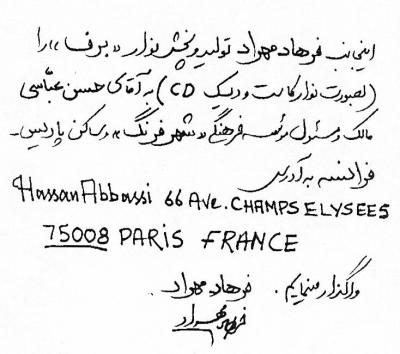 اینجانب فرهاد مهراد تولید و پخش نوار «برف» را
(بصورت نوار کاست و دیسک CD) به آقای حسن عباسی
مالک و مسئول مؤسسه فرهنگی «شهر فرنگ» ساکن پاریس -
فرانسه به آدرس
Hassan Abbassi 66 Ave. CHAMPS ELYSEES
75008 PARIS FRANCE
واگذار مینمایم. فرهاد مهراد.
فرهاد مهراد